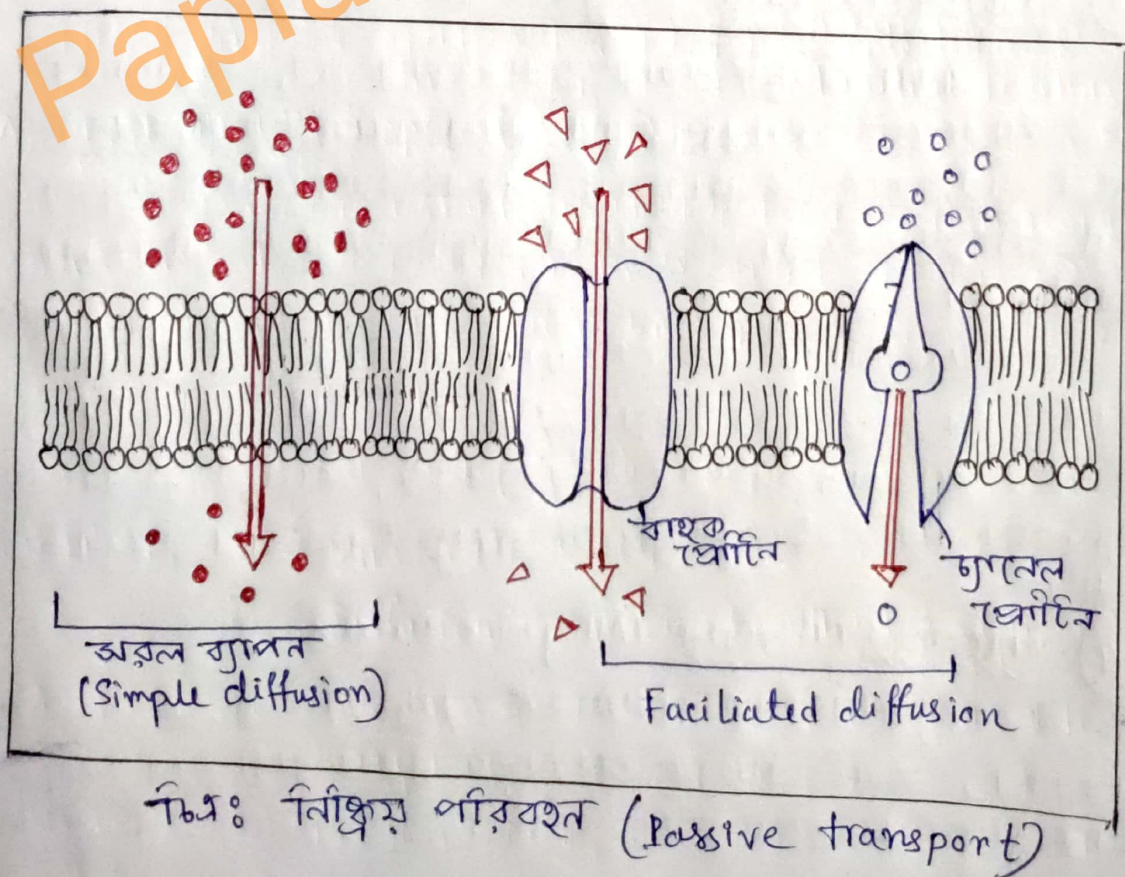 Papia
বাহক
প্রোটিন
চ্যানেল
প্রোটিন
সরল ব্যাপন
(Simple diffusion)
Faciliated diffusion
চিত্র: নিষ্ক্রিয় পরিবহন (Passive transport)